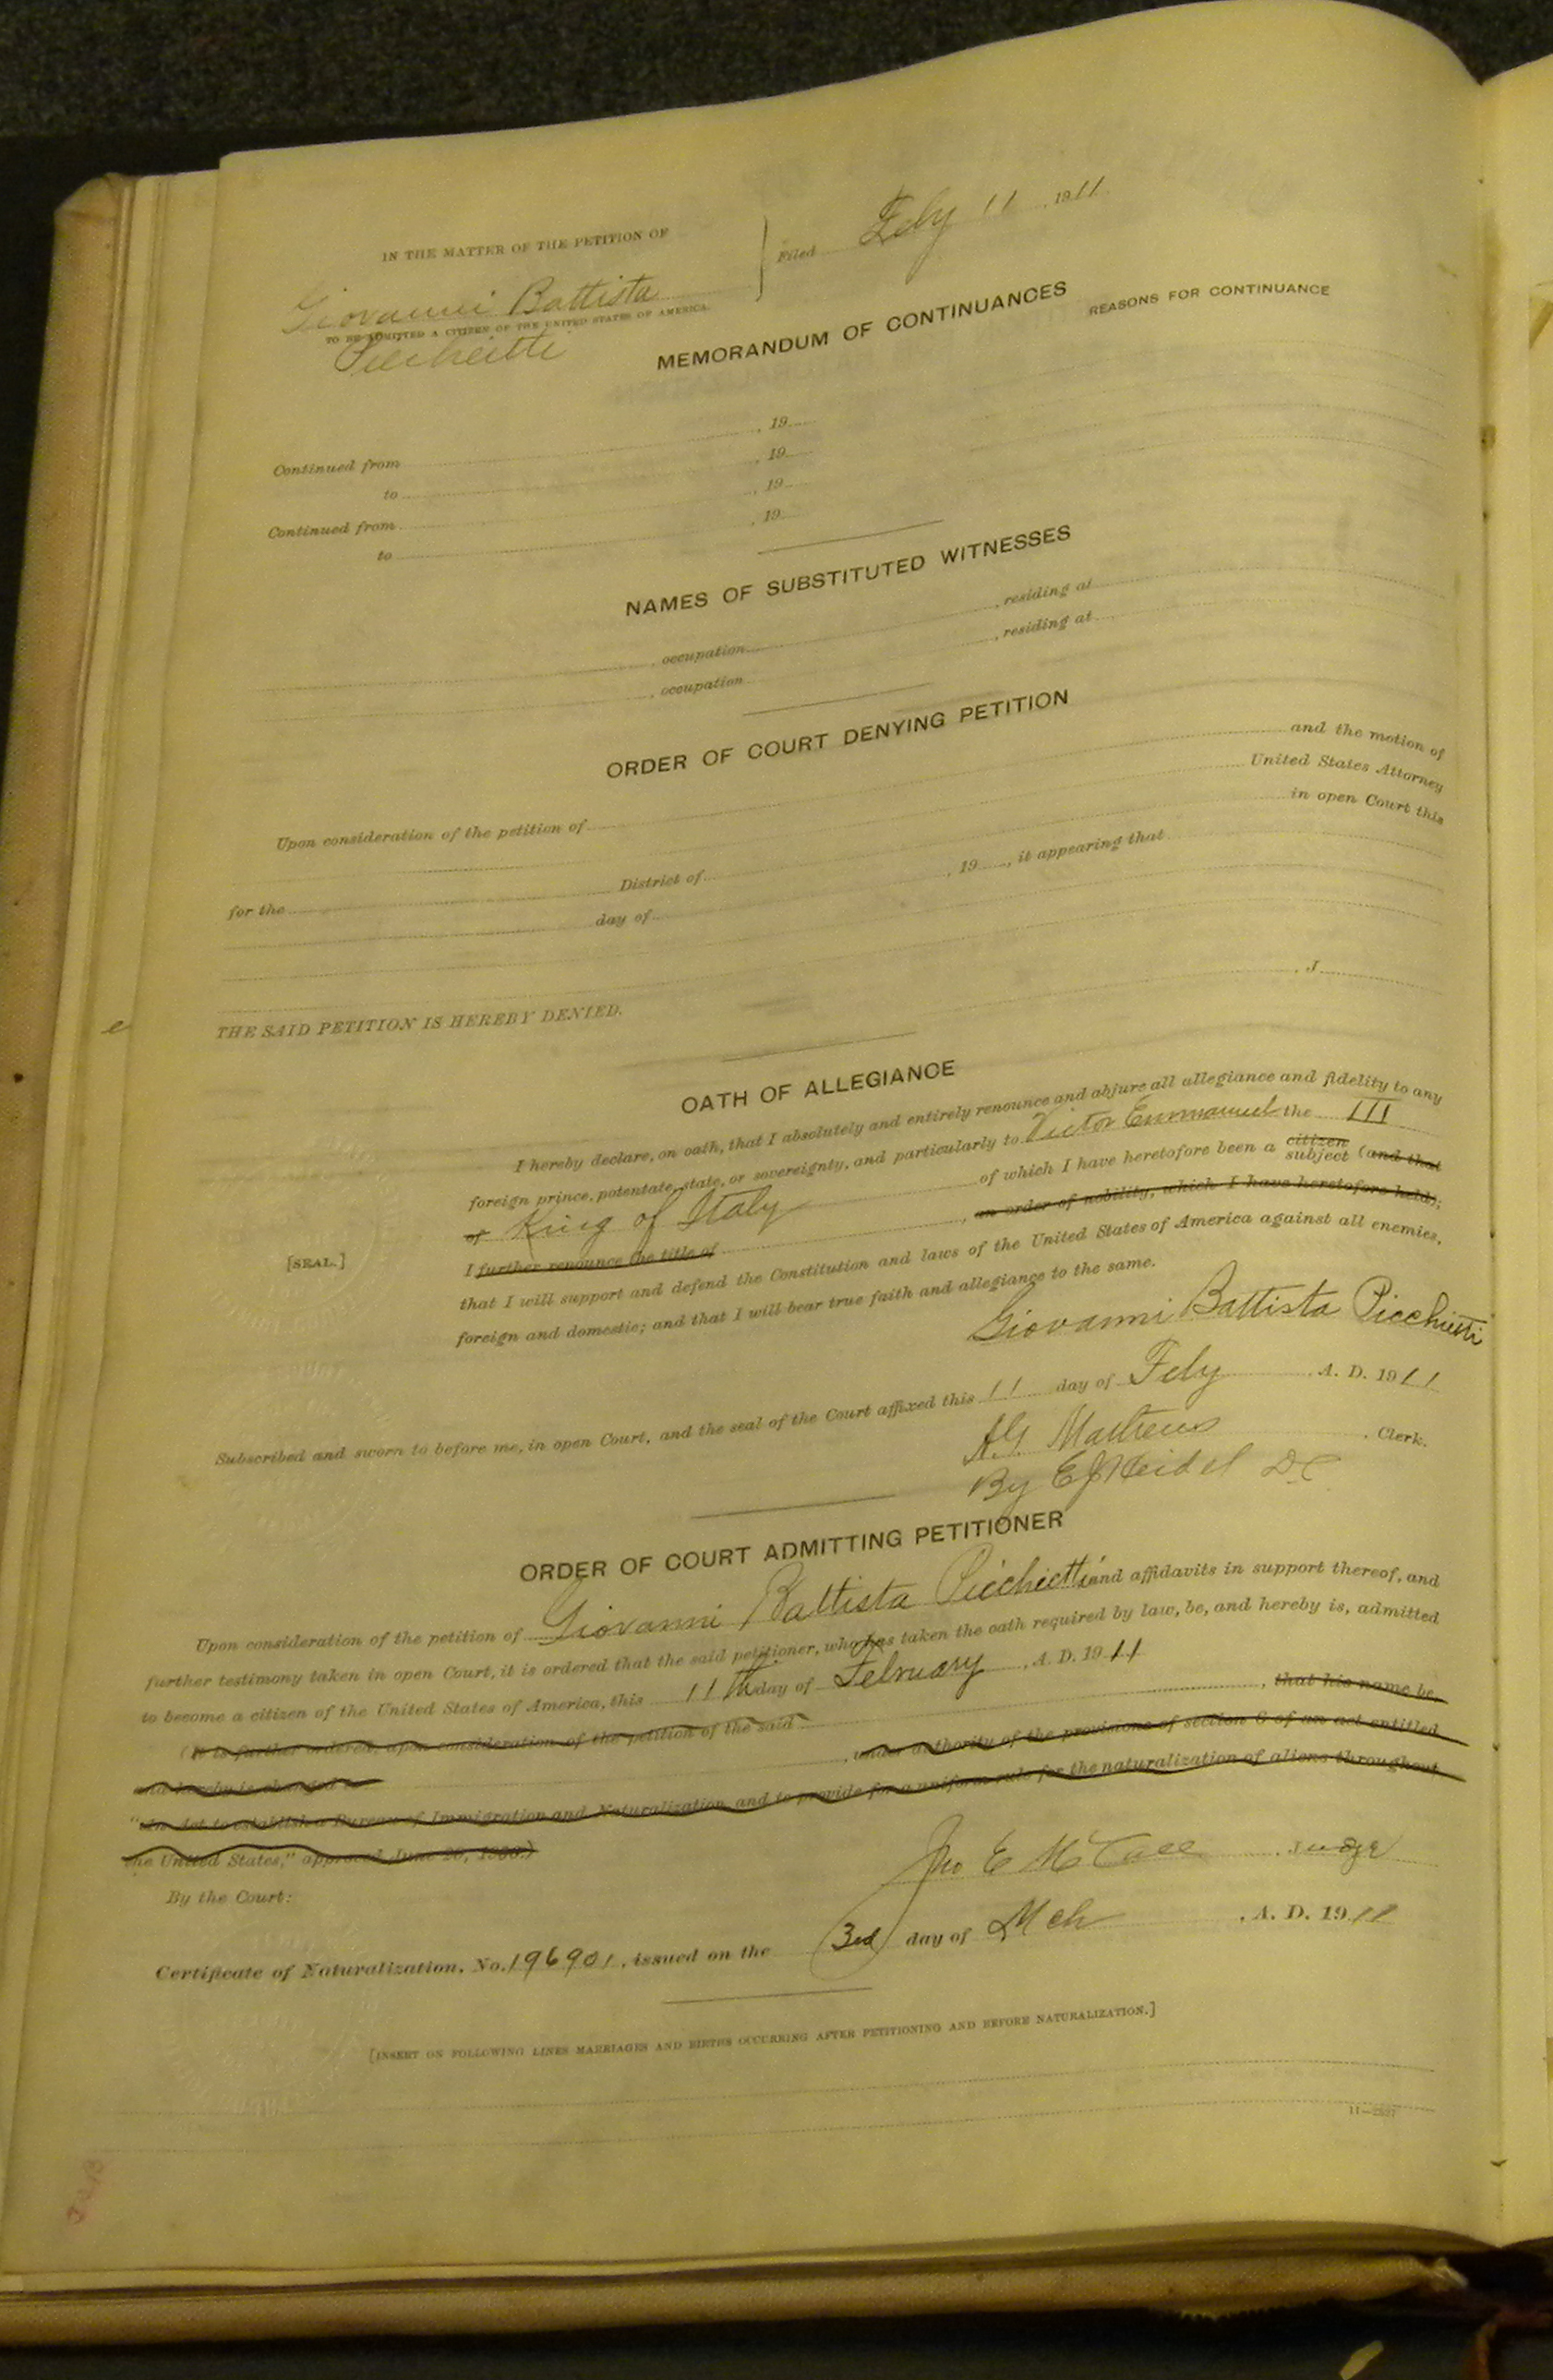 IN THE MATTER OF THE PETITION OF
Giovanni Battista
TO BE ADMITTED A CITIZEN OF THE UNITED STATES OF AMERICA.
Picchietti
Filed Feby 11, 1911
MEMORANDUM OF CONTINUANCES
REASONS FOR CONTINUANCE
Continued from , 19
to , 19
Continued from , 19
to , 19
NAMES OF SUBSTITUTED WITNESSES
, occupation , residing at
, occupation , residing at
ORDER OF COURT DENYING PETITION
Upon consideration of the petition of and the motion of
United States Attorney
for the District of in open Court this
day of , 19 , it appearing that
THE SAID PETITION IS HEREBY DENIED.
, J
OATH OF ALLEGIANCE
I hereby declare, on oath, that I absolutely and entirely renounce and abjure all allegiance and fidelity to any
foreign prince, potentate, state, or sovereignty, and particularly to Victor Emmanuel the III
of King of Italy of which I have heretofore been a citizen subject (and that
I further renounce the title of , an order of nobility, which I have heretofore held);
that I will support and defend the Constitution and laws of the United States of America against all enemies,
foreign and domestic; and that I will bear true faith and allegiance to the same.
[SEAL.]
Giovanni Battista Picchietti
Subscribed and sworn to before me, in open Court, and the seal of the Court affixed this 11 day of Feby A. D. 1911
Mathews , Clerk.
By Heidel D.C
ORDER OF COURT ADMITTING PETITIONER
Upon consideration of the petition of Giovanni Battista Picchietti and affidavits in support thereof, and
further testimony taken in open Court, it is ordered that the said petitioner, who has taken the oath required by law, be, and hereby is, admitted
to become a citizen of the United States of America, this 11th day of February , A. D. 1911
(It is further ordered, upon consideration of the petition of the said , that his name be,
and hereby is, changed to , under authority of the provisions of section 6 of an act entitled
"An Act to establish a Bureau of Immigration and Naturalization, and to provide for a uniform rule for the naturalization of aliens throughout
the United States," approved June 29, 1906.)
By the Court:
Jno E McCall , Judge
Certificate of Naturalization, No. 196901, issued on the 3rd day of Mch , A. D. 1911
[INSERT ON FOLLOWING LINES MARRIAGES AND BIRTHS OCCURRING AFTER PETITIONING AND BEFORE NATURALIZATION.]